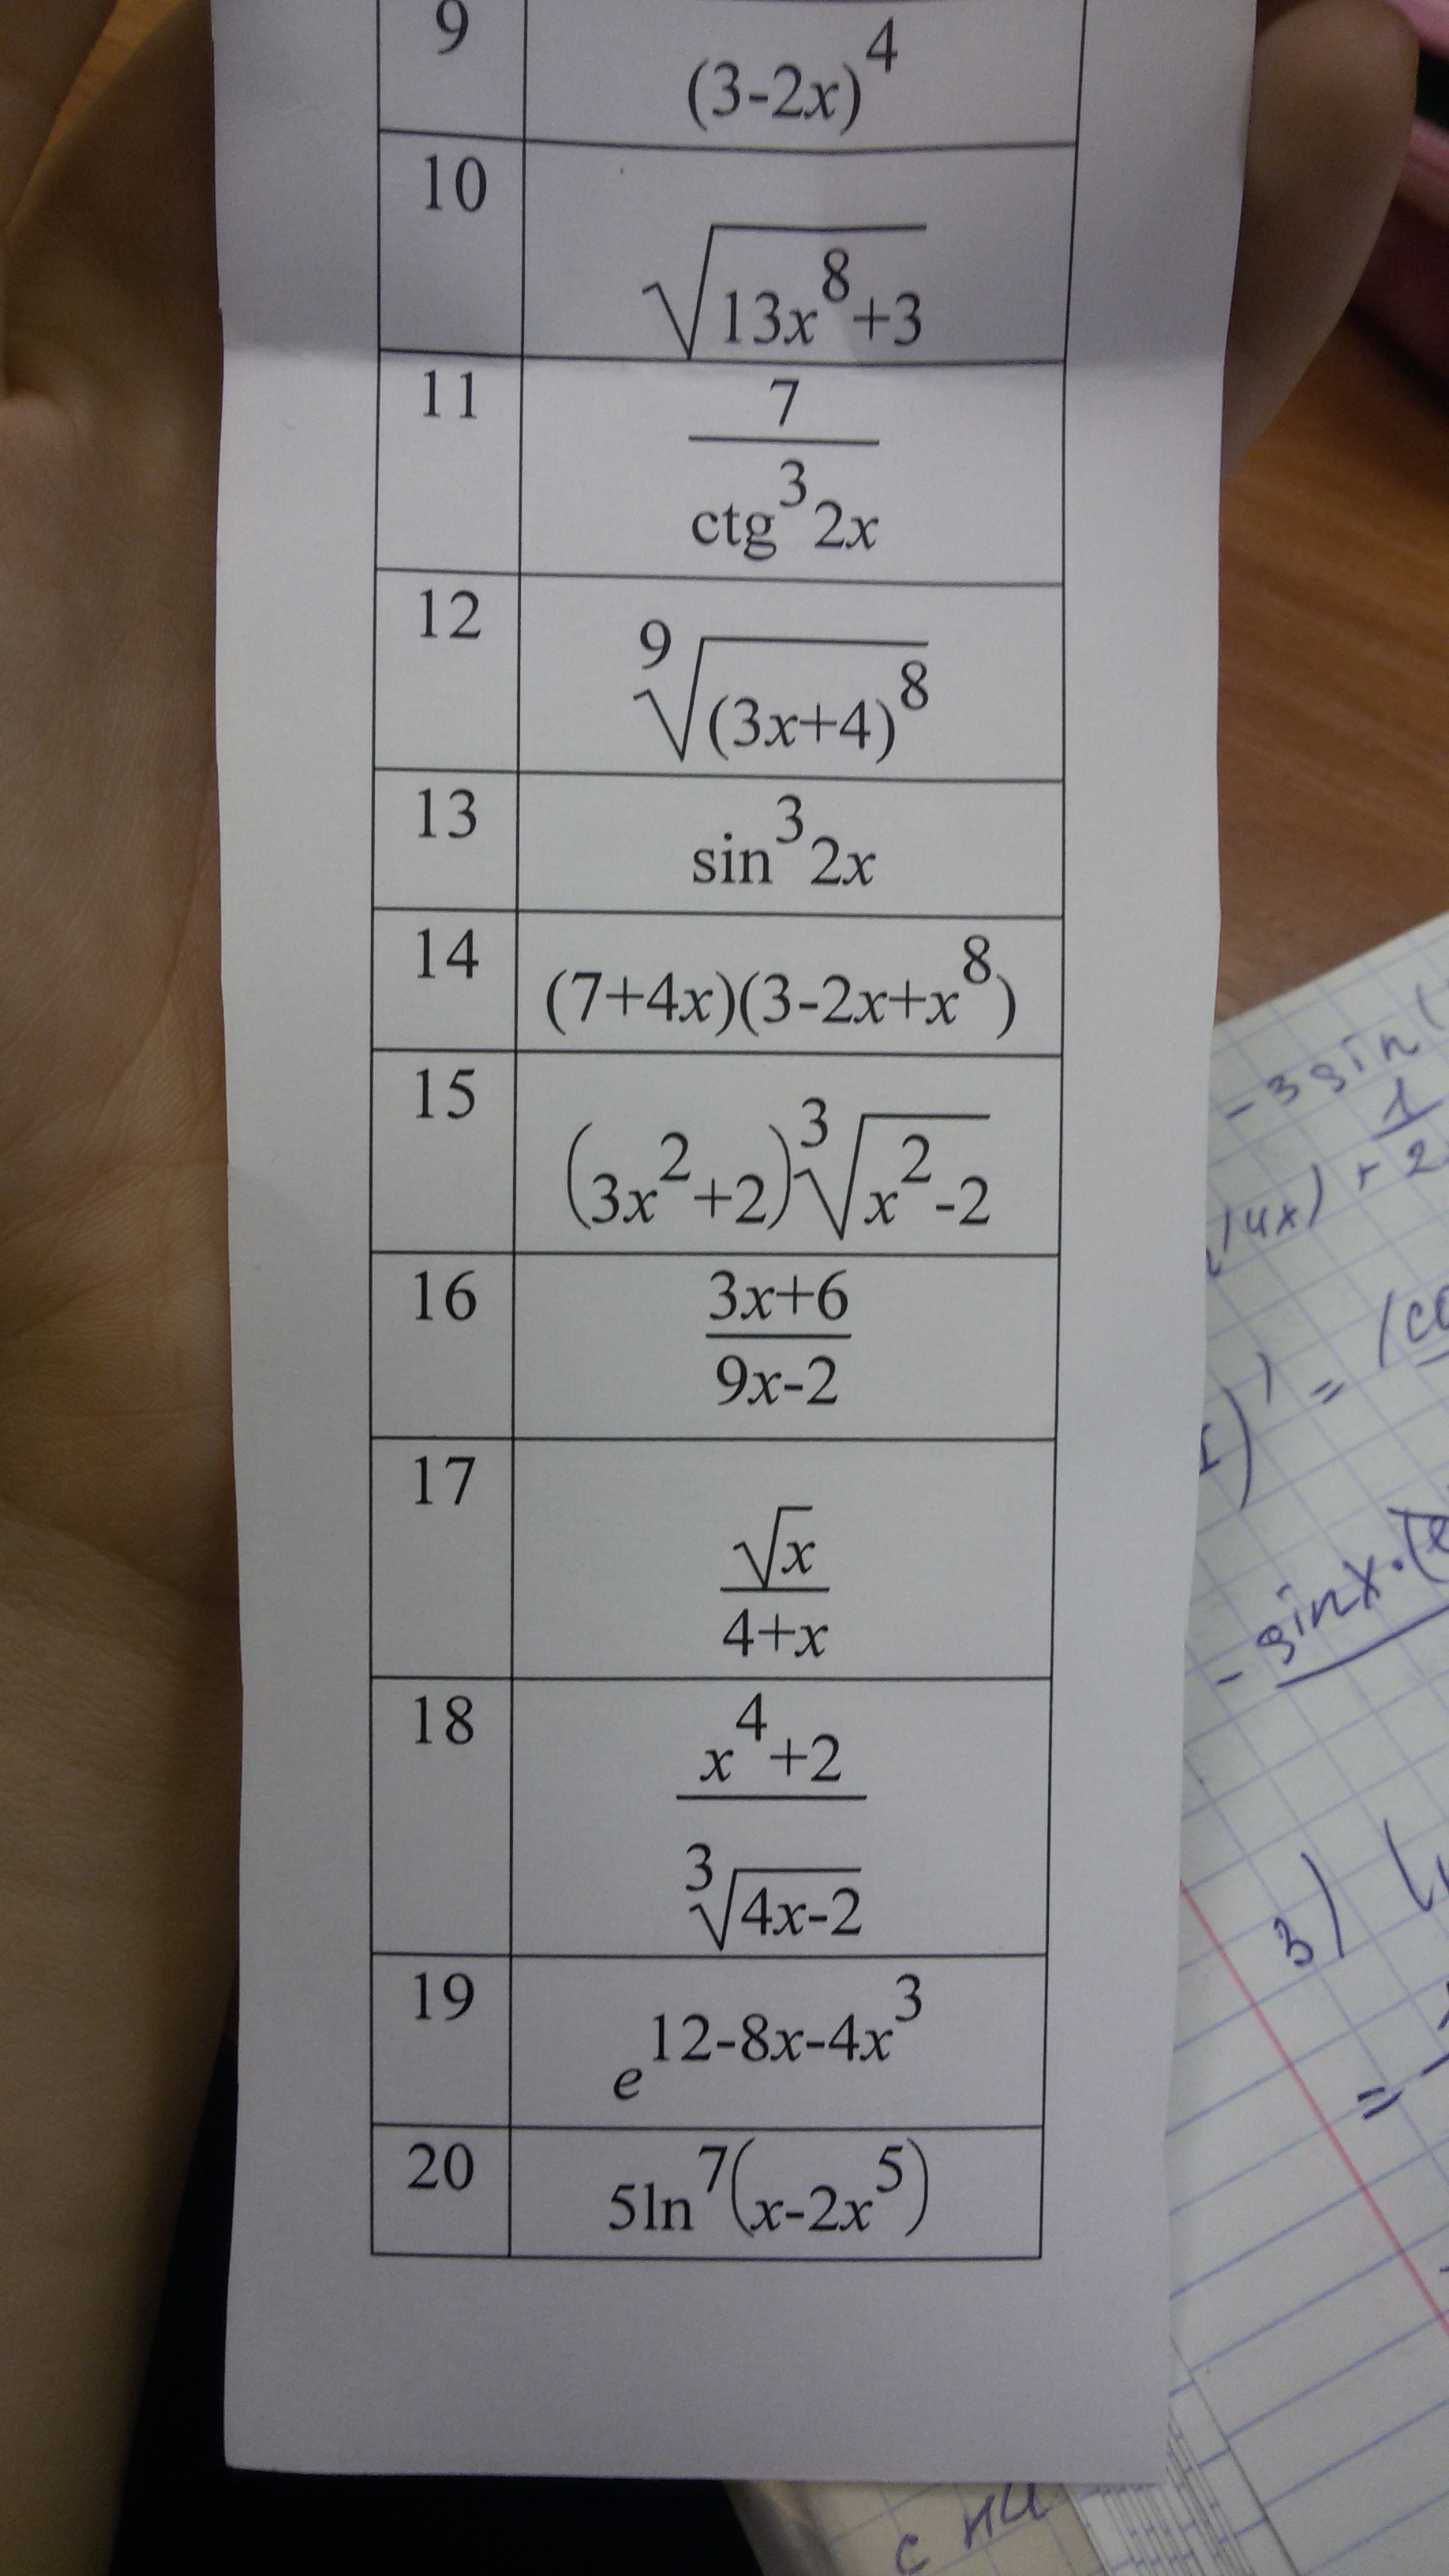 9 (3-2x)^4
10 √(13x^8+3)
11 7/(ctg^3 2x)
12 ⁹√((3x+4)^8)
13 sin^3 2x
14 (7+4x)(3-2x+x^8)
15 (3x^2+2) ³√(x^2-2)
16 (3x+6)/(9x-2)
17 √x/(4+x)
18 (x^4+2)/³√(4x-2)
19 e^(12-8x-4x^3)
20 5ln^7(x-2x^5)
-3 sin(
1
4x) + 2
)' =
- sin x · (
3)
=